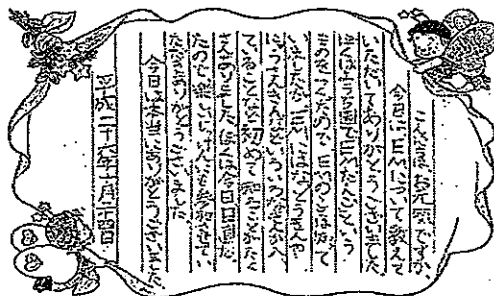 こんにちは、お元気ですか。
今日はEMについて教えて
いただいてありがとうございました。
ぼくはようち園でEMだんごという
ものをつくったので、EMのことは知って
いましたが、EMにはにゅうさんきん
こうさんきんなどいろいろなきんが入っ
ていることなど初めて知ることがたく
さんありました。ぼくは今日日直だっ
たので、楽しいじっけんにも参加させてい
ただきありがとうございました。
今日は本当にありがとうございました。
平成二十六年十月二十四日